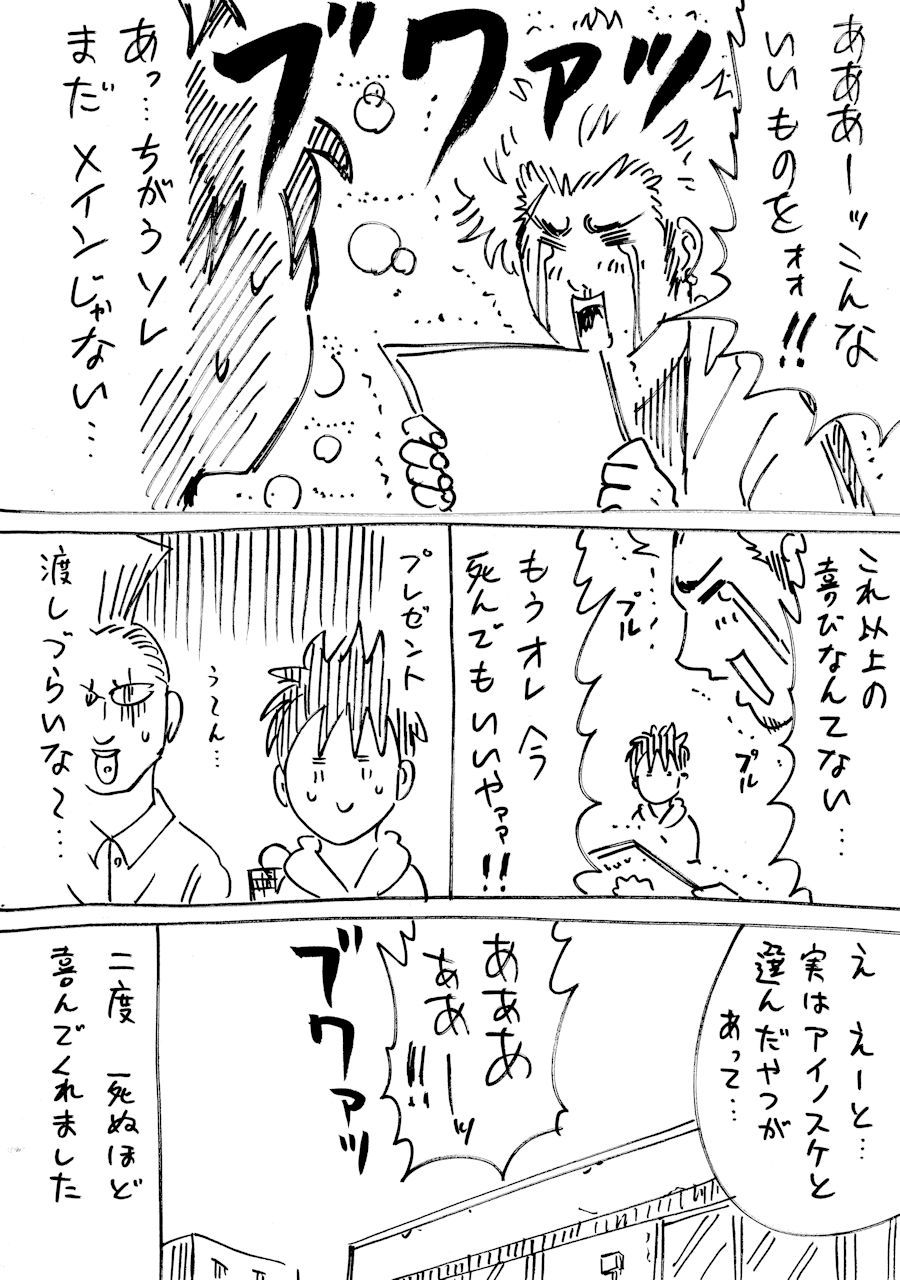 あああーッこんな
いいものをォォ!!
ブワァッ
あっ…ちがうソレ
まだメインじゃない…
これ以上の
喜びなんてない…
プル
プル
もうオレへラ
死んでもいいやァァ!!
プレゼント
う〜ん…
渡しづらいな〜…
え えーと…
実はアイノスケと
選んだやつが
あって…
あああ
ああーッ
!!
ブワァッ
二度 死ぬほど
喜んでくれました